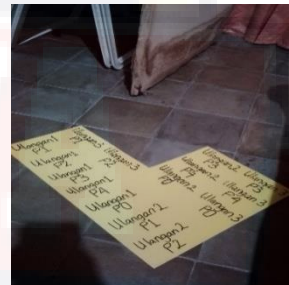 Ulangan 1
P1
Ulangan 1
P2
Ulangan 1
P3
Ulangan 1
P4
Ulangan 1
P0
Ulangan 2
P1
Ulangan 2
P2
Ulangan 3
Ulangan 3
Ulangan 2
P3
Ulangan 2
P4
Ulangan 2
P0
Ulangan 3
Ulangan 3
P4
Ulangan 3
P0